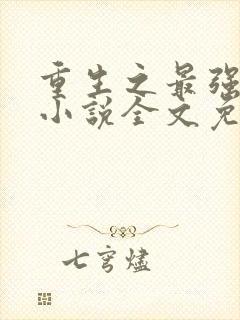 重生之最强
小说全文免
七穹烬